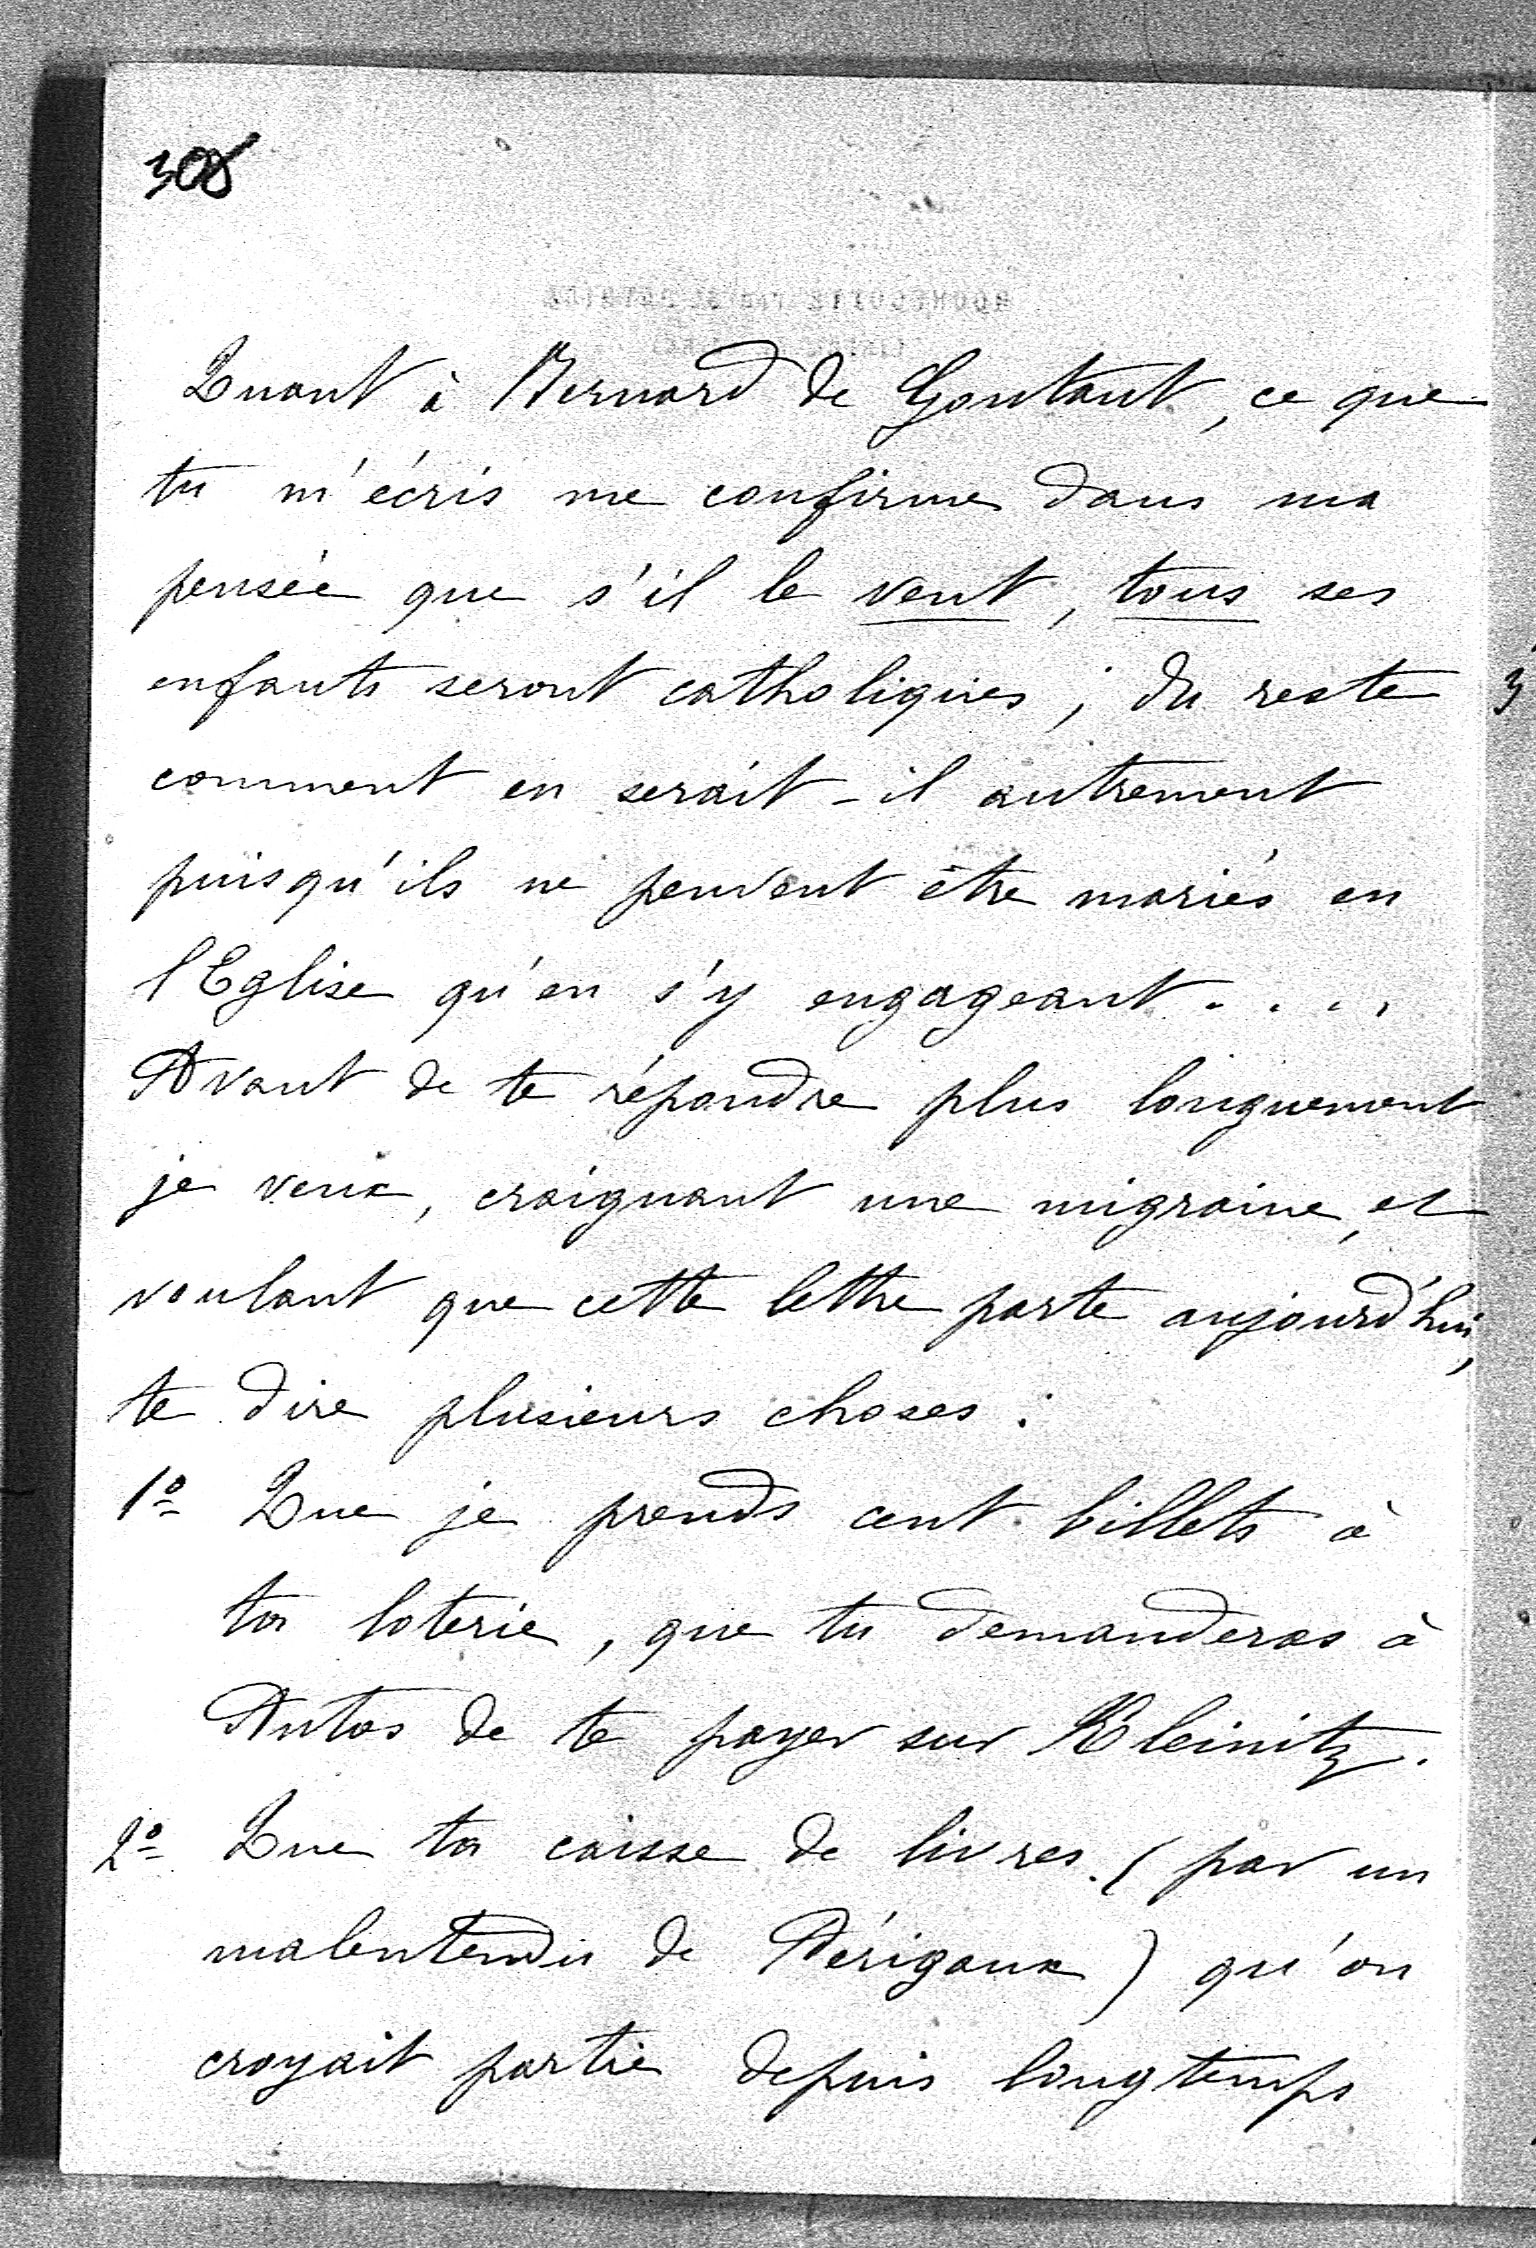 308
Quant à Bernard de Gontaut, ce que
tu m'écris me confirme dans ma
pensée que s'il le veut, tous ses
enfants seront catholiques ; du reste
comment en serait-il autrement
puisqu'ils ne peuvent être mariés en
l'Eglise qu'en s'y engageant....
Avant de te répondre plus longuement
je veux, craignant une migraine, et
voulant que cette lettre parte aujourd'hui,
te dire plusieurs choses :
1º Que je prends cent billets à
ta loterie, que tu demanderas à
Antos de te payer sur Kleinitz.
2º Que ta caisse de livres (par un
malentendu de Périgaux) qu'on
croyait partie depuis longtemps